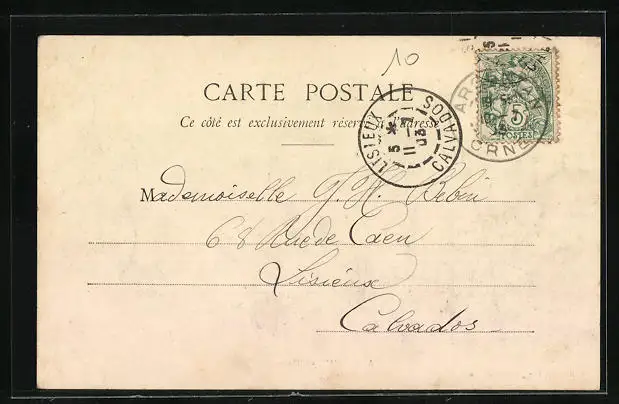 10
CARTE POSTALE
Ce côté est exclusivement réservé à l'adresse
LISIEUX
5 * 11 - 1 03
CALVADOS
ARGENTAN
ORNE
5
POSTES
Mademoiselle
68 Rue de Caen
Lisieux
Calvados